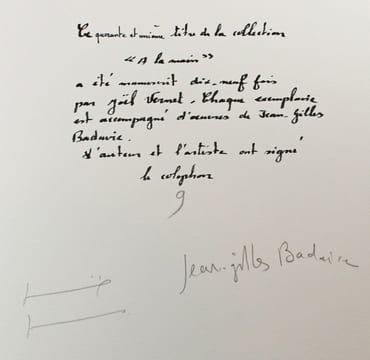 Ce quarante et unième titre de la collection
« A la main »
a été manuscrit dix-neuf fois
par Joël Vernet. Chaque exemplaire
est accompagné d'œuvres de Jean-Gilles
Badaire.
L'auteur et l'artiste ont signé
le colophon
9
Jean-gilles Badaire